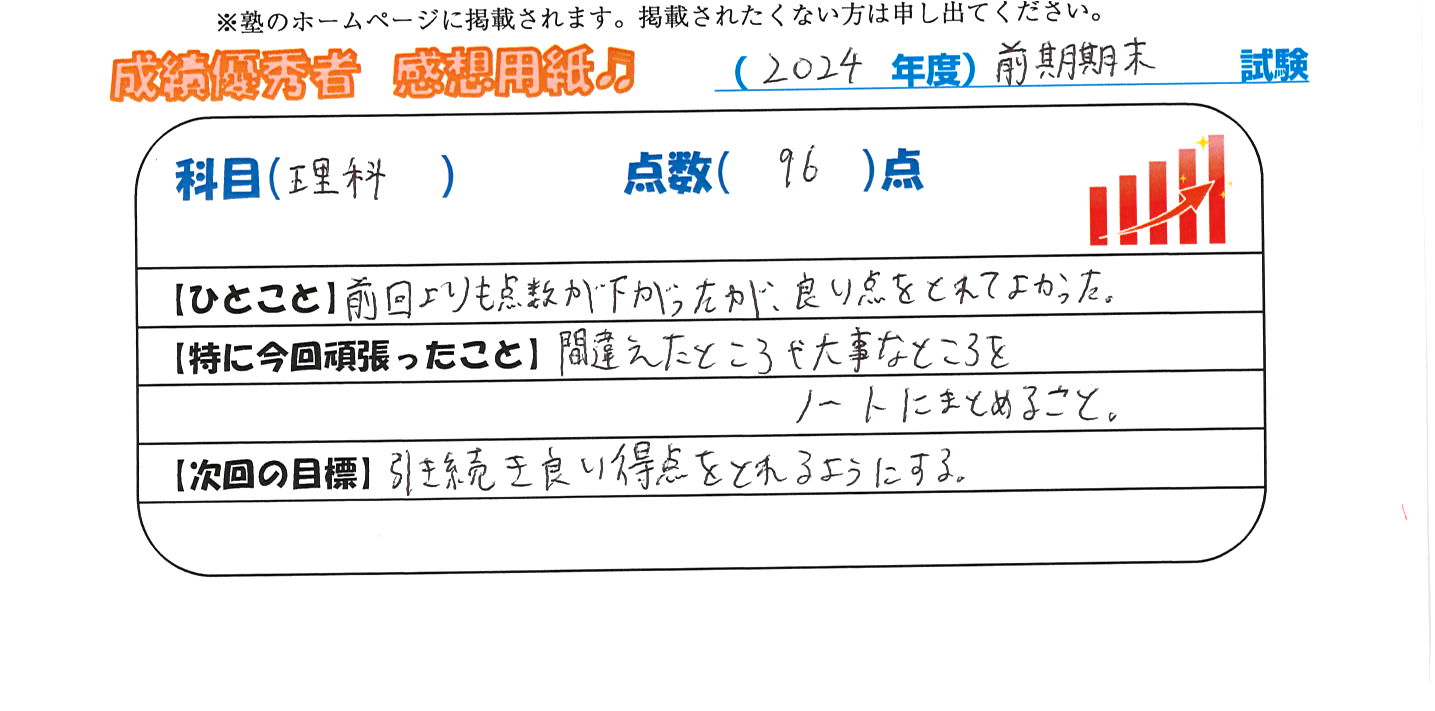 ※塾のホームページに掲載されます。掲載されたくない方は申し出てください。
成績優秀者 感想用紙♫ (2024 年度)前期期末 試験
科目(理科 ) 点数( 96 )点
【ひとこと】前回よりも点数が下がったが、良い点をとれてよかった。
【特に今回頑張ったこと】間違えたところや大事なところを
ノートにまとめること。
【次回の目標】引き続き良い得点をとれるようにする。